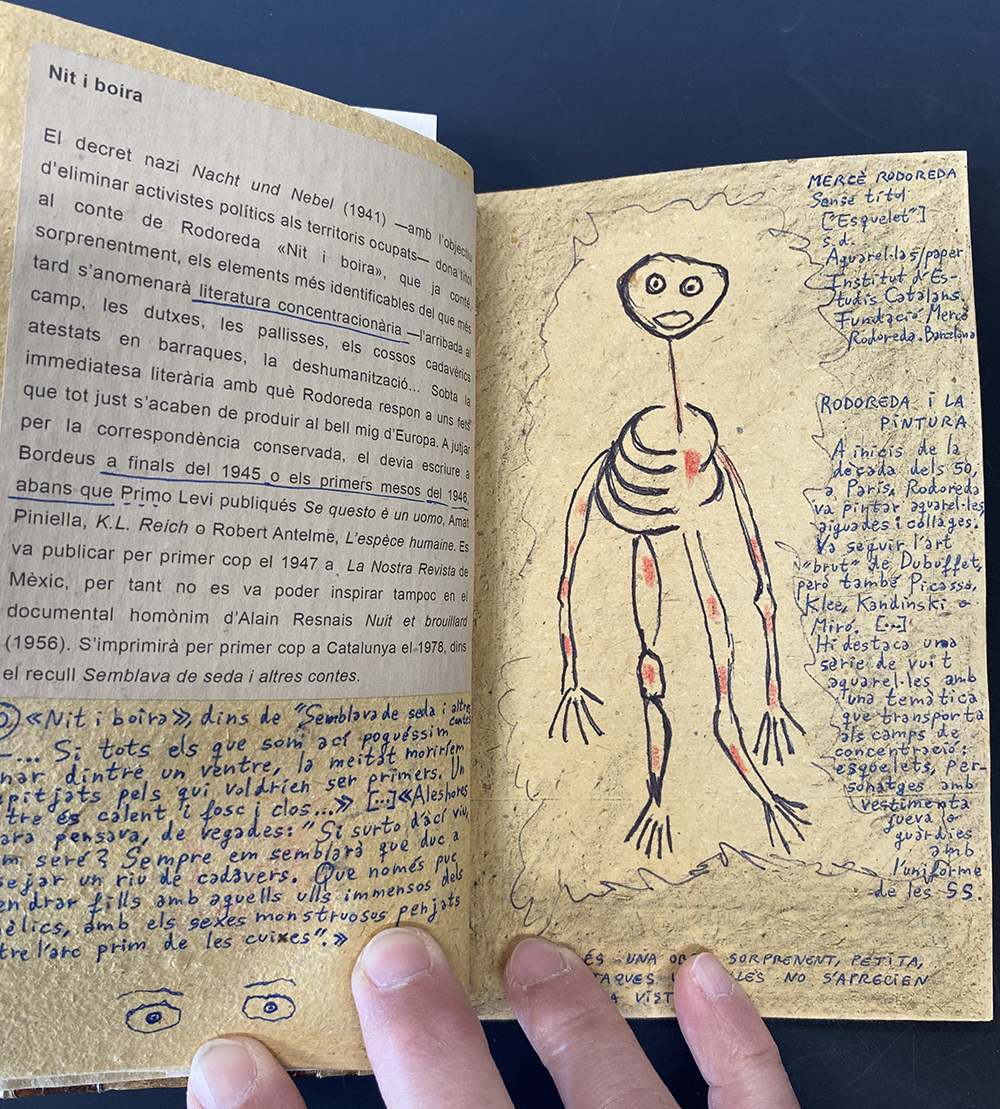 Nit i boira
El decret nazi Nacht und Nebel (1941) —amb l'objectiu
d'eliminar activistes polítics als territoris ocupats— dona títol
al conte de Rodoreda «Nit i boira», que ja conté,
sorprenentment, els elements més identificables del que més
tard s'anomenarà literatura concentracionària —l'arribada al
camp, les dutxes, les pallisses, els cossos cadavèrics
atestats en barraques, la deshumanització... Sobta la
immediatesa literària amb què Rodoreda respon a uns fets
que tot just s'acaben de produir al bell mig d'Europa. A jutjar
per la correspondència conservada, el devia escriure a
Bordeus a finals del 1945 o els primers mesos del 1946,
abans que Primo Levi publiqués Se questo è un uomo, Amat
Piniella, K.L. Reich o Robert Antelme, L'espèce humaine. Es
va publicar per primer cop el 1947 a La Nostra Revista de
Mèxic, per tant no es va poder inspirar tampoc en el
documental homònim d'Alain Resnais Nuit et brouillard
(1956). S'imprimirà per primer cop a Catalunya el 1978, dins
el recull Semblava de seda i altres contes.
«Nit i boira», dins de "Semblava de seda i altres
contes
–... Si tots els que som ací poguéssim
nar dintre un ventre, la meitat moriríem
pitjats pels qui voldrien ser primers. Un
tre és calent i fosc i clos...» [...] «Aleshores
ara pensava, de vegades: "Si surto d'ací viu,
m seré? Sempre em semblarà que duc a
sejar un riu de cadàvers. Que només puc
endrar fills amb aquells ulls immensos dels
èlics, amb els sexes monstruosos penjats
tre l'arc prim de les cuixes".»
MERCÈ RODOREDA
Sense títol
["Esquelet"]
s.d.
Aquarel·la s/paper
Institut d'Es-
tudis Catalans.
Fundació Mercè
Rodoreda. Barcelona
RODOREDA i LA
PINTURA
A inicis de la
dècada dels 50,
a París, Rodoreda
va pintar aquarel·les,
aiguades i collages.
Va seguir l'art
"brut" de Dubuffet,
però també Picasso,
Klee, Kandinski o
Miró. [...]
Hi destaca una
sèrie de vuit
aquarel·les amb
una temàtica
que transporta
als camps de
concentració:
esquelets, per-
sonatges amb
vestimenta
jueva o
guàrdies
amb
l'uniforme
de les SS.
ÉS UNA SORPRENENT, PETITA,
TAQUES NO S'APRECIEN
A VIST